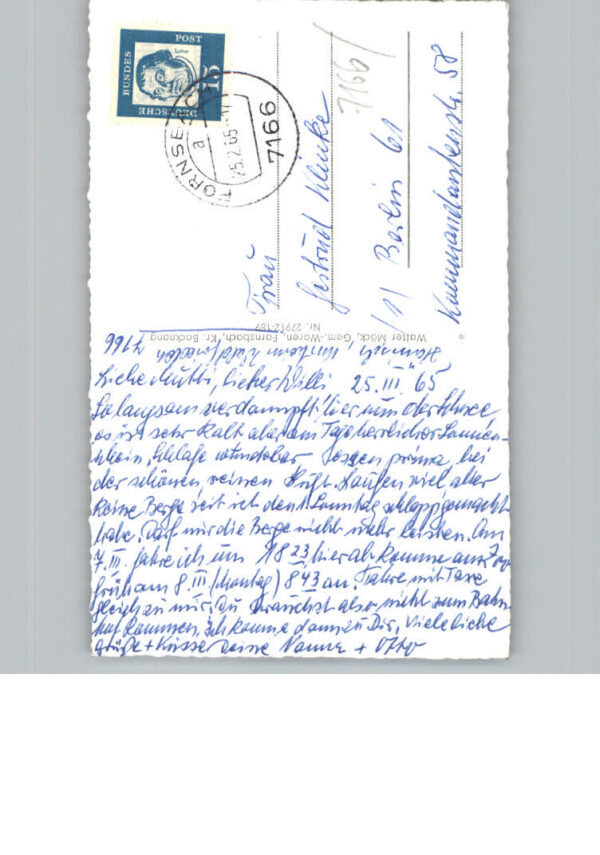 DEUTSCHE
BUNDES
POST
15
Luther
FORNSBACH
a
25.2.65
7166
7166/
Frau
Gertrud Klinke
(1) Berlin 61
Kommandantenstr. 58
* Walter Mück, Gem.-Waren, Fornsbach, Kr. Backnang
Nr. 27912-189
7166
Liebe Mutti, lieber Willi 25. III. 65
So langsam verdampft hier nun der Schnee
es ist sehr kalt aber am Tage herrlicher Sonnen-
schein, Schlafe wunderbar Essen prima, bei
der schönen reinen Luft. Laufen viel aber
keine Berge seit ich den 1. Sonntag schlapp gemacht
habe. Darf mir die Berge nicht mehr leisten. Am
7. III. fahre ich um 18 23 hier ab komme am 7 00
früh am 8. III (Montag) 8 43 an. Fahre mit Taxe
gleich zu mir, Du brauchst also nicht zum Bahn-
hof kommen, ich komme dann zu Dir, Viele liebe
Grüße + Küsse Deine Nanne + Otto